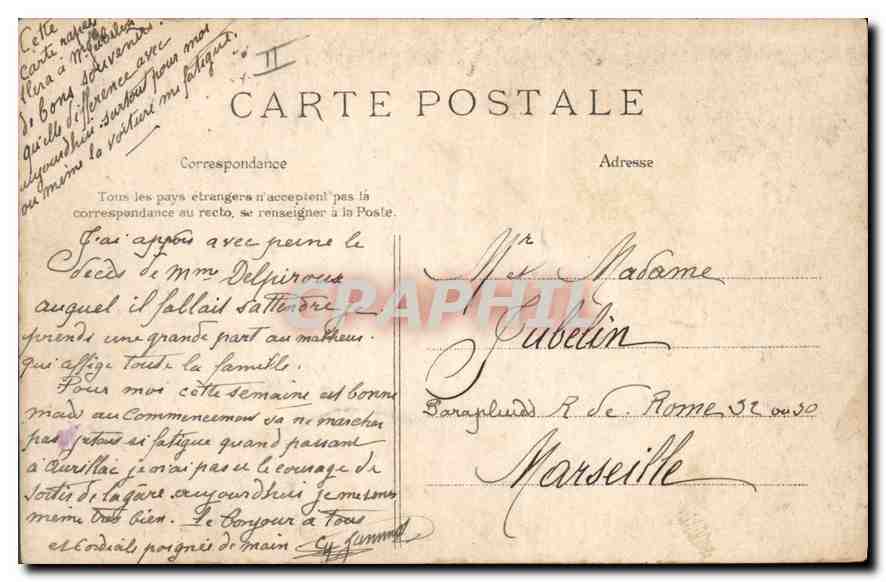 Cette
carte rappel
llera à Mr Jubelin
de bons souvenirs.
qu'elle différence avec
aujourdhui surtout pour moi
ou même la voiture me fatigue.
II
CARTE POSTALE
Correspondance
Adresse
Tous les pays étrangers n'acceptent pas la
correspondance au recto, se renseigner à la Poste.
J'ai appris avec peine le
décès de Mme Delpiroux
auquel il fallait s'attendre je
prends une grande part au malheur
qui aflige toute la famille.
Pour moi cette semaine est bonne
mais au commencement sa ne marchai
pas j'étais si fatigué quand passant
à Aurillac je n'ai pas eu le courage de
sortir de la gare aujourdhui je me sens
même très bien. Le bonjour à tous
et cordiale poignée de main
Mr et Madame
Jubelin
Parapluies R de Rome 32 ou 30
Marseille
CPAPHIL